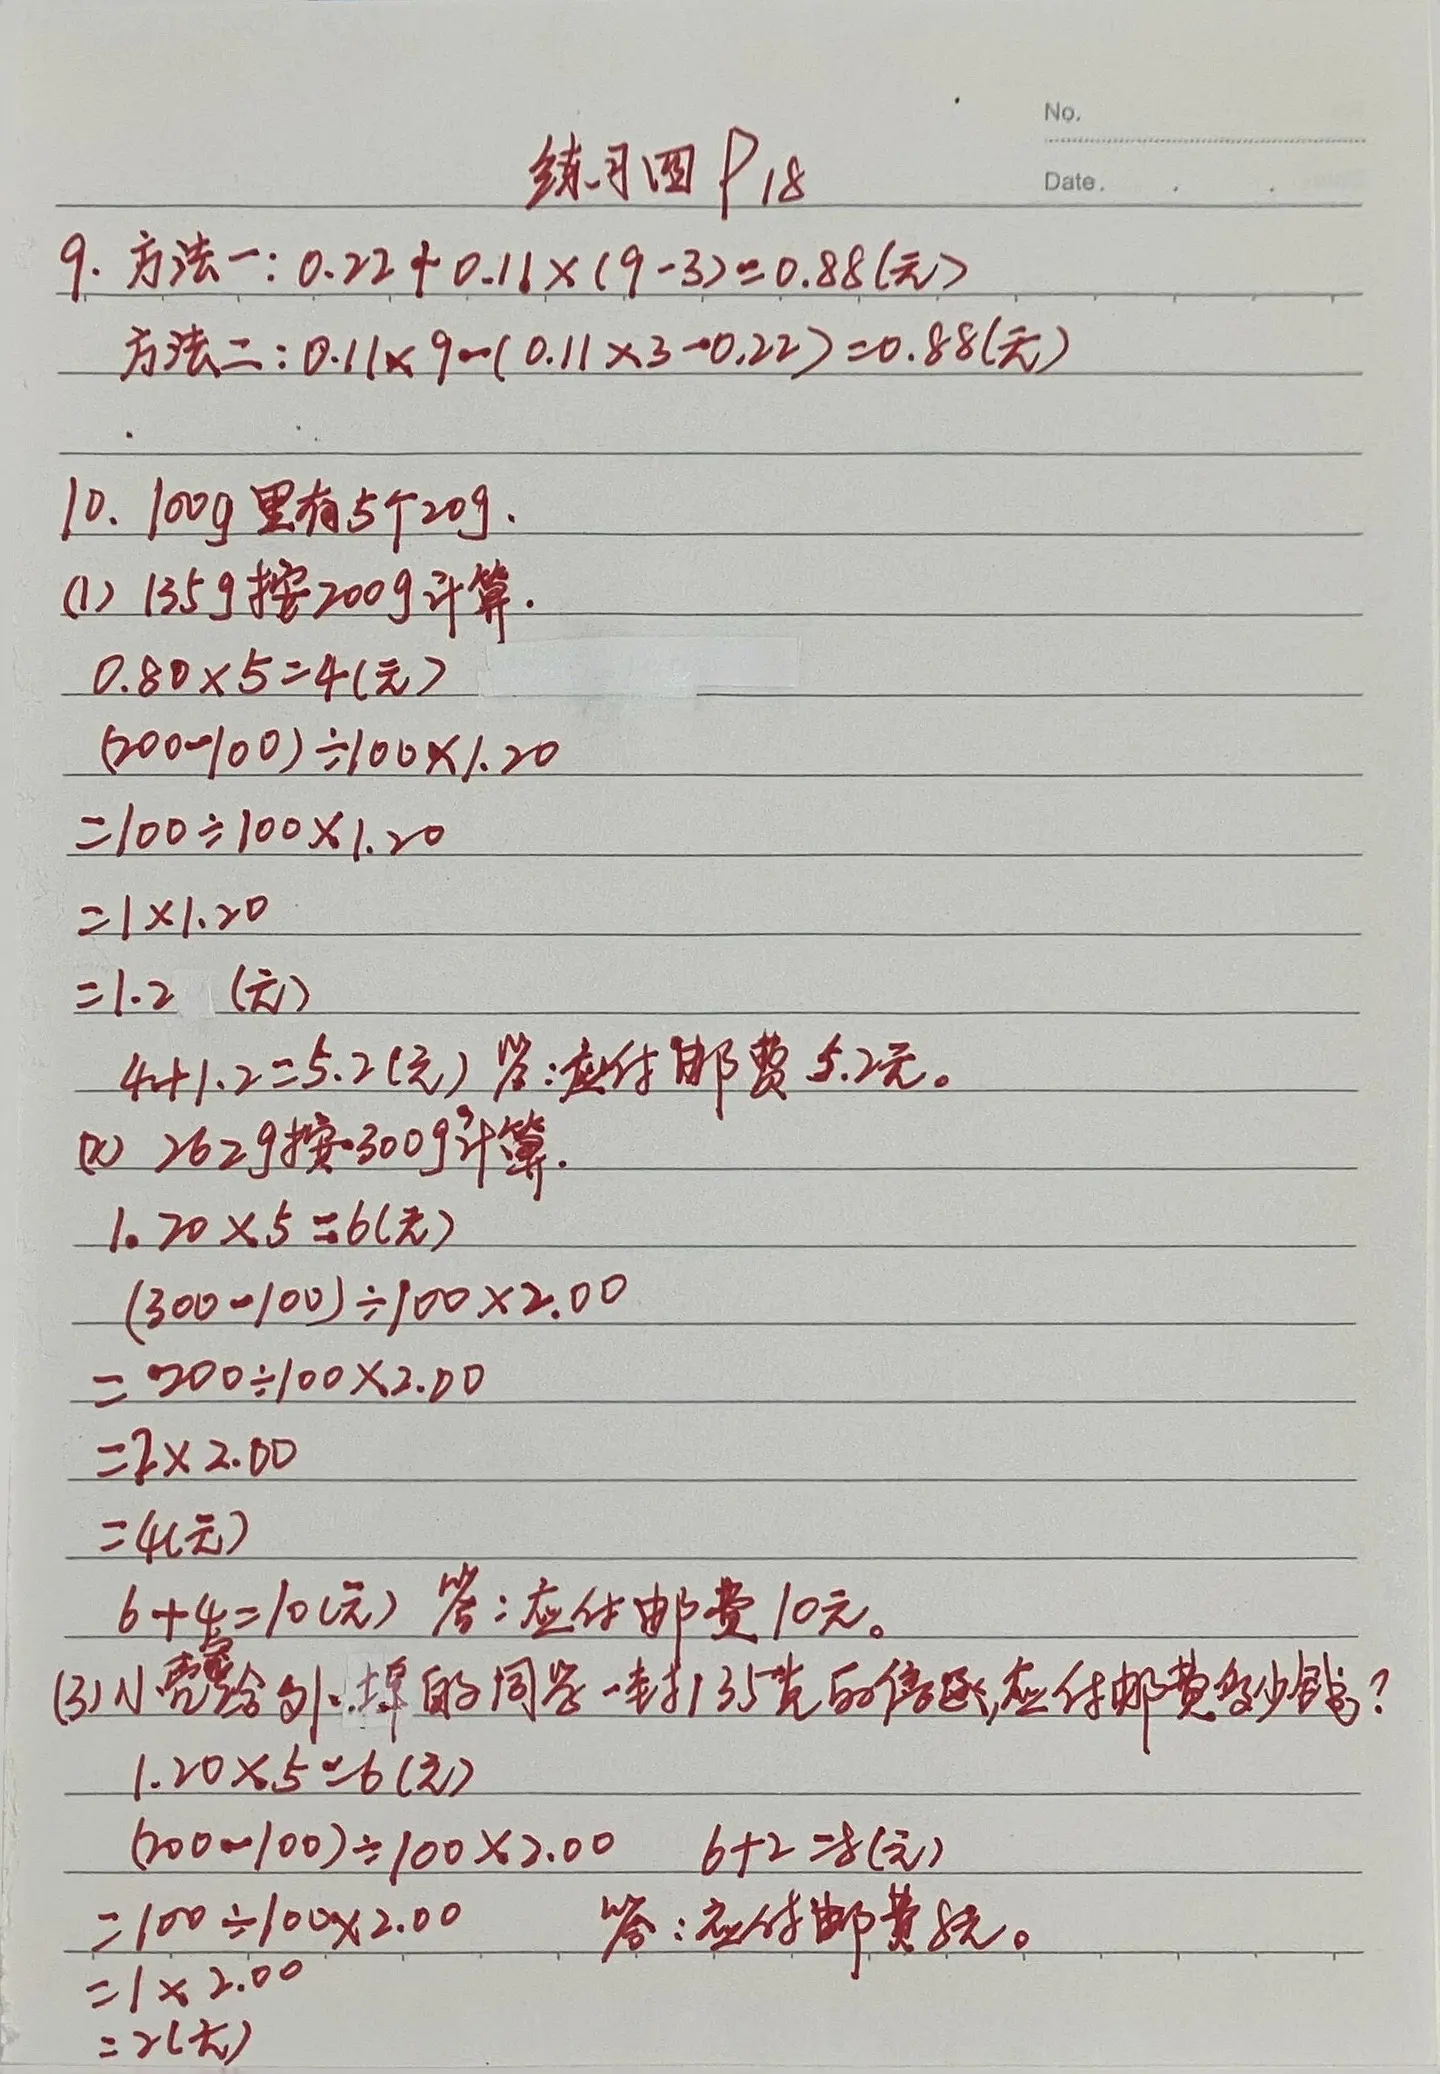 No.
Date.
练习四 P18
9. 方法一:0.22+0.11×(9-3)=0.88(元)
方法二:0.11×9-(0.11×3-0.22)=0.88(元)
10. 100g里有5个20g.
(1) 135g按200g计算.
0.80×5=4(元)
(200-100)÷100×1.20
=100÷100×1.20
=1×1.20
=1.2 (元)
4+1.2=5.2(元) 答:应付邮费5.2元。
(2) 262g按300g计算.
1.20×5=6(元)
(300-100)÷100×2.00
=200÷100×2.00
=2×2.00
=4(元)
6+4=10(元) 答:应付邮费10元。
(3)小亮给外埠的同学寄一封135克的信函,应付邮费多少钱?
1.20×5=6(元)
(200-100)÷100×2.00 6+2=8(元)
=100÷100×2.00 答:应付邮费8元。
=1×2.00
=2(元)